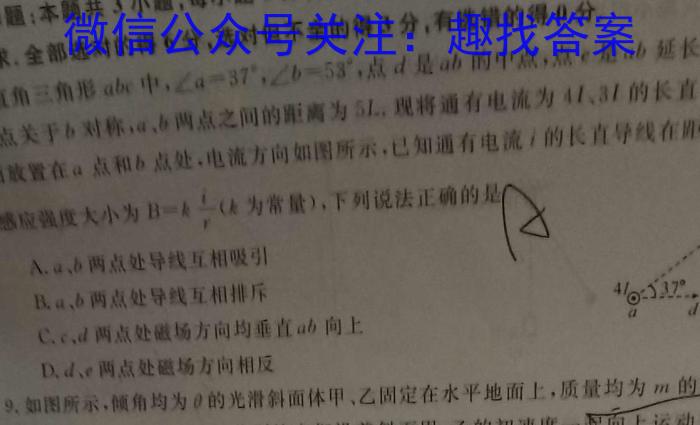 题:本题共3小题,每小题
求.全部选对的得 分,选对但不全的得 分,有选错的得0分.
微信公众号关注：趣找答案
直角三角形abc中,∠a=37°,∠b=53°,点d是ab的中点,点e是ab延长
点关于b对称,a、b两点之间的距离为5L.现将通有电流为4I、3I的长直
放置在a点和b点处,电流方向如图所示,已知通有电流i的长直导线在距
感应强度大小为B=k i/r(k为常量),下列说法正确的是
A.a、b两点处导线互相吸引
B.a、b两点处导线互相排斥
C.c、d两点处磁场方向均垂直ab向上
D.d、e两点处磁场方向相反
4I 37°
a d
9.如图所示,倾角均为θ的光滑斜面体甲、乙固定在水平地面上,质量均为m的